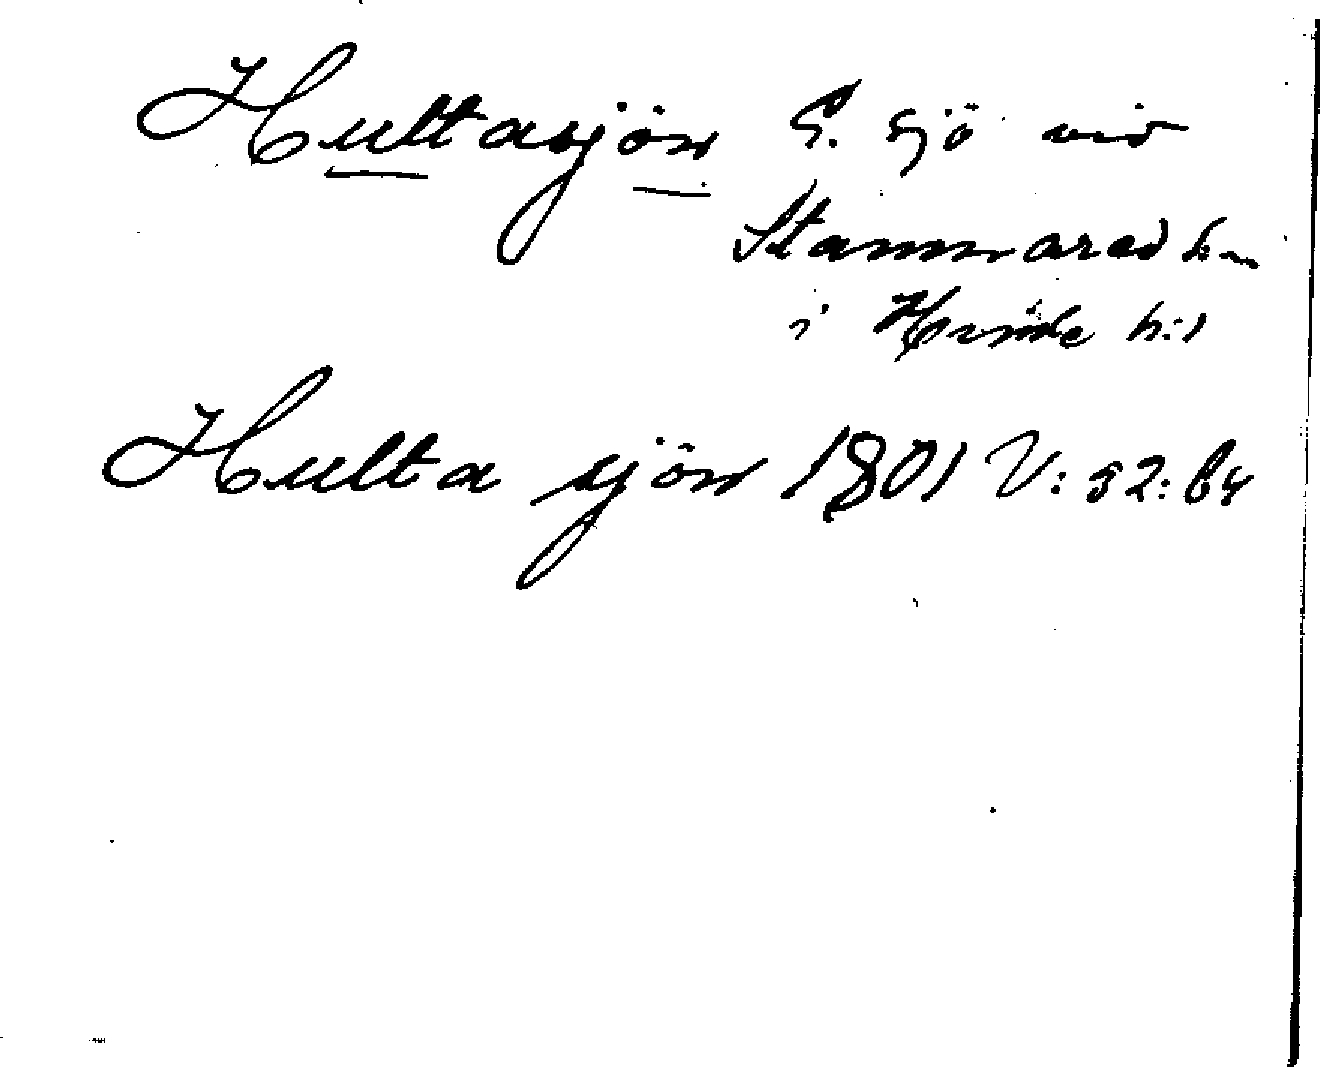 Hultasjön S. sjö vid
Stammared hn
i Hvinle hd
Hulta sjön 1801 V: 32: by